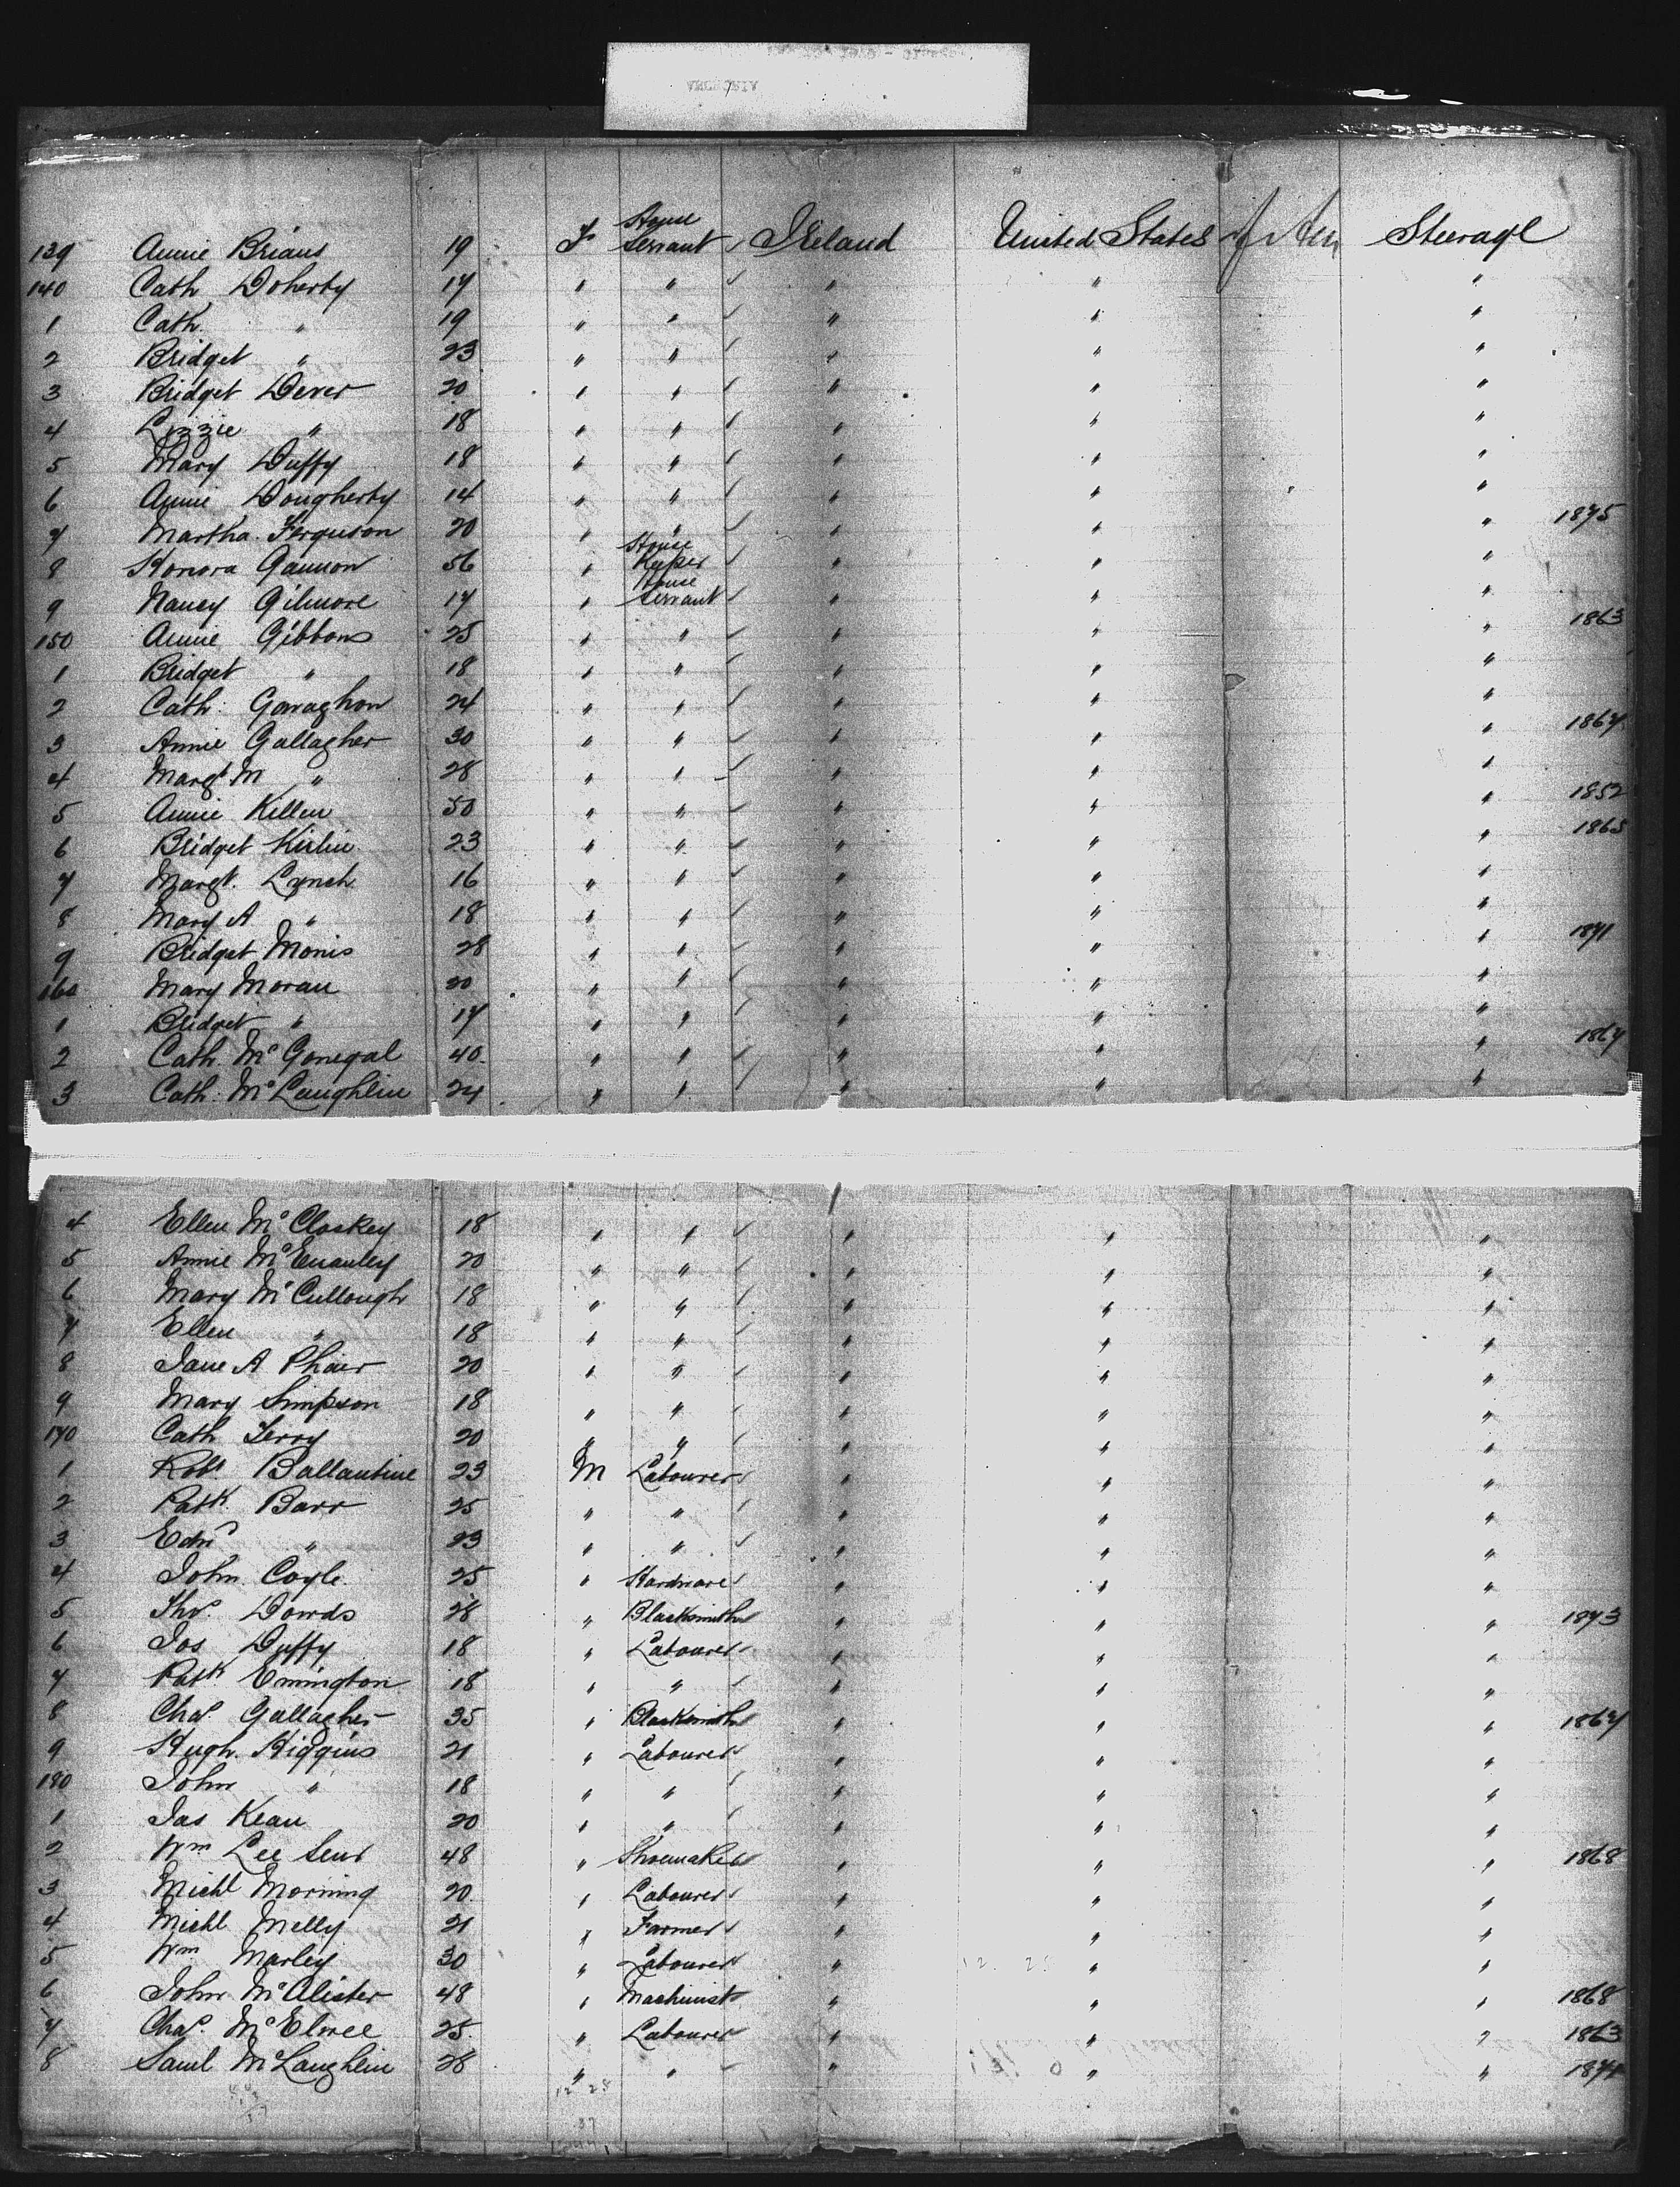 139 Annie Brians 19 F House Servant Ireland United States Steerage
140 Cath Doherty 17 " " " " "
1 Cath. " 19 " " " " "
2 Bridget " 23 " " " " "
3 Bridget Dever 20 " " " " "
4 Lizzie " 18 " " " " "
5 Mary Duffy 18 " " " " "
6 Annie Dougherty 14 " " " " "
7 Martha Ferguson 20 " " " " " 1875
8 Honora Gannon 56 " House Keeper " " "
9 Nancy Gilmore 17 " House Servant " " "
150 Annie Gibbons 25 " " " " " 1863
1 Bridget " 18 " " " " "
2 Cath. Garraghon 24 " " " " "
3 Annie Gallagher 30 " " " " " 1867
4 Margt M " 28 " " " " "
5 Annie Killen 50 " " " " " 1852
6 Bridget Kirlin 23 " " " " " 1865
7 Margt. Lynch 16 " " " " "
8 Mary A " 18 " " " " "
9 Bridget Morris 28 " " " " " 1871
160 Mary Moran 20 " " " " "
1 Bridget " 17 " " " " "
2 Cath. McGonegal 40 " " " " " 1867
3 Cath. McLaughlin 24 " " " " "
4 Ellen McCloskey 18 " " " " "
5 Annie 20 " " " " "
6 Mary McCullough 18 " " " " "
7 Ellen " 18 " " " " "
8 Jane A Phair 20 " " " " "
9 Mary Simpson 18 " " " " "
170 Cath Terry 20 " " " " "
1 Robt Ballantine 23 M Labourer " " "
2 Patk Barr 25 " " " " "
3 Edw " 23 " " " " "
4 John Coyle 25 " Hardware " " "
5 Thos. Dowds 28 " Blacksmith " " " 1873
6 Jos Duffy 18 " Labourer " " "
7 Patk Emington 18 " " " " "
8 Chas Gallagher 35 " Blacksmith " " " 1867
9 Hugh Higgins 21 " Labourer " " "
180 John " 18 " " " " "
1 Jas Kean 20 " " " " "
2 Wm Lee Senr 48 " Shoemaker " " " 1868
3 Michl Morning 20 " Labourer " " "
4 Michl Melly 21 " Farmer " " "
5 Wm Marley 30 " Labourer " " "
6 John McAlister 48 " Machinist " " " 1868
7 Chas. McElwee 25 " Labourer " " " 1863
8 Saml McLaughlin 28 " " " " " 1871